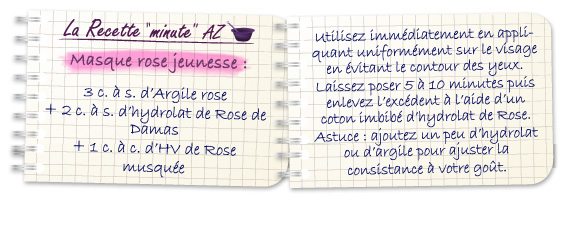 La Recette "minute" AZ
Masque rose jeunesse :
3 c. à s. d'Argile rose
+ 2 c. à s. d'hydrolat de Rose de
Damas
+ 1 c. à c. d'HV de Rose
musquée
utilisez immédiatement en appli-
quant uniformément sur le visage
en évitant le contour des yeux.
Laissez poser 5 à 10 minutes puis
enlevez l'excédent à l'aide d'un
coton imbibé d'hydrolat de Rose.
Astuce : ajoutez un peu d'hydrolat
ou d'argile pour ajuster la
consistance à votre goût.